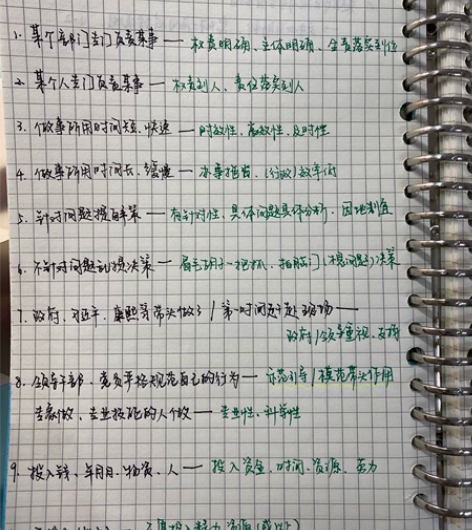 1. 某个部门专门负责某事 — 权责明确、主体明确、全责落实到位
2. 某个人专门负责某事 — 权责到人、责任落实到人
3. 做事所用时间短、快速 — 时效性、高效性、及时性
4. 做事所用时间长、缓慢 — 办事拖沓、(行政)效率低
5. 针对问题提决策 — 有针对性、具体问题具体分析、因地制宜
6. 不针对问题乱提决策 — 眉毛胡子一把抓、拍脑门(想问题)决策
7. 政府、习近平、康熙等带头做了 / 第一时间赶赴现场 —
政府/领导重视、支持
8. 领导干部、党员严格规范自己的行为 — 示范引导/模范带头作用
专家做、专业技能的人做 — 专业性、科学性
9. 投入钱、年月日、物资、人 — 投入资金、时间、资源、劳力